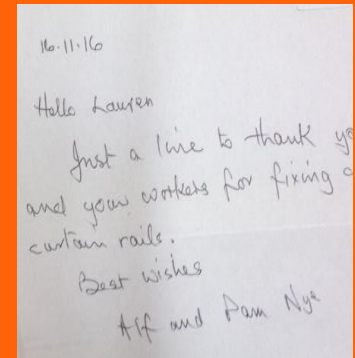 16.11.16
Hello Lauren
Just a line to thank
and your workers for fixing
curtain rails.
Best wishes
Alf and Pam Nye